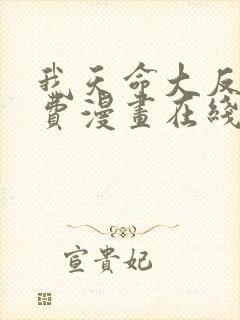 我天命大反
費漫畫在綫
宣貴妃